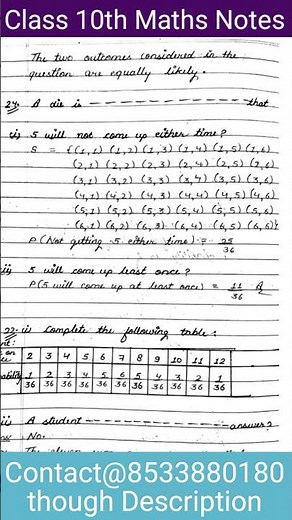 Class 10th Maths Notes
The two outcomes considered in the
question are equally likely.
24. A die is ——————— that
(i) 5 will not come up either time?
S = {(1,1) (1,2) (1,3) (1,4) (1,5) (1,6)
(2,1) (2,2) (2,3) (2,4) (2,5) (2,6)
(3,1) (3,2) (3,3) (3,4) (3,5) (3,6)
(4,1) (4,2) (4,3) (4,4) (4,5) (4,6)
(5,1) (5,2) (5,3) (5,4) (5,5) (5,6)
(6,1) (6,2) (6,3) (6,4) (6,5) (6,6)}
P(Not getting 5 either time) = 25/36
ii) 5 will come up least once?
P(5 will come up at least once) = 11/36
22. i) Complete the following table:
nt:
on 2 3 4 5 6 7 8 9 10 11 12
ability 1/36 2/36 3/36 4/36 5/36 6/36 5/36 4/36 3/36 2/36 1/36
ii A student ——————— answer?
No.
Contact@8533880180
though Description